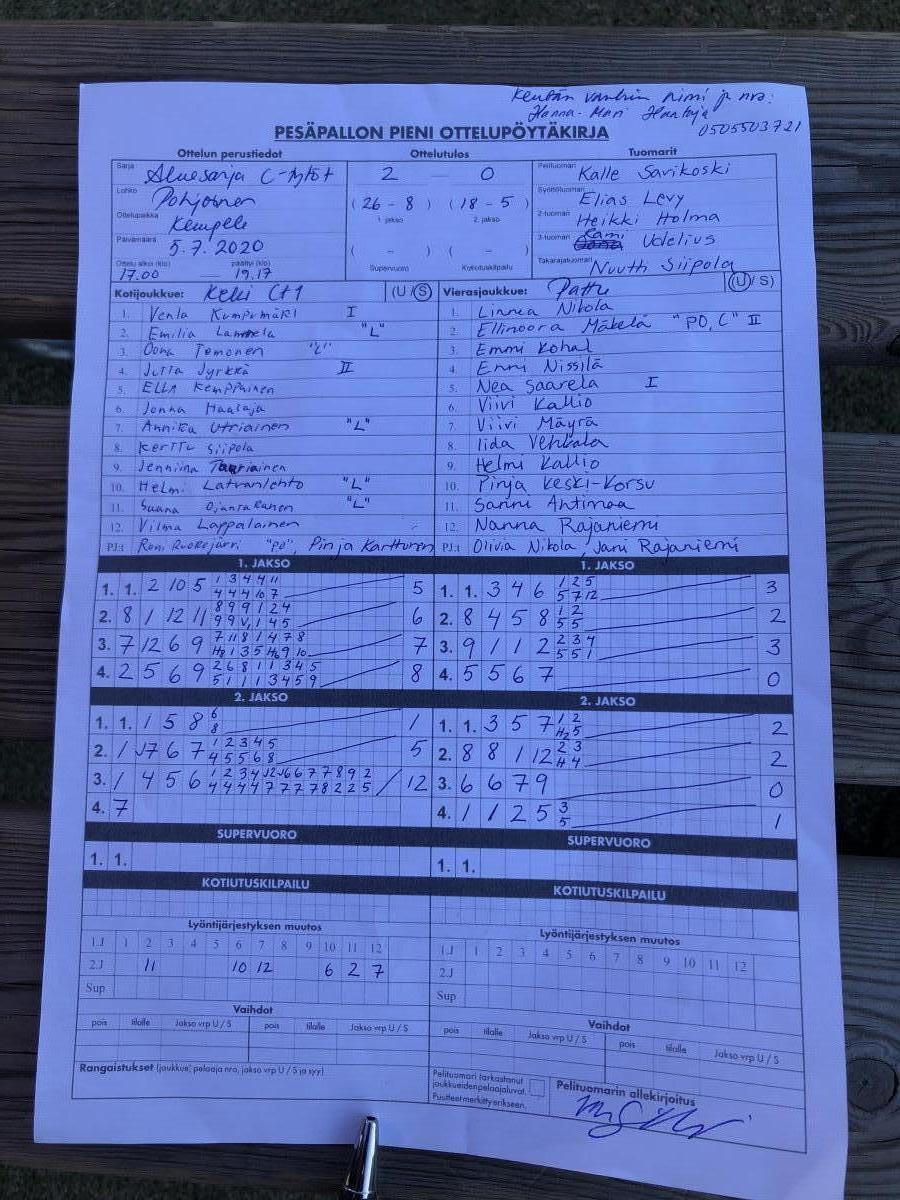 Kentän vanhin nimi ja nro:
Hanna-Mari Haataja
0505503721
PESÄPALLON PIENI OTTELUPÖYTÄKIRJA
Ottelun perustiedot Ottelutulos Tuomarit
Sarja Aluesarja C-tytöt 2 0 Pelituomari Kalle Savikoski
Lohko Pohjoinen (26 - 8) (18 - 5) Syöttötuomari Elias Levy
Ottelupaikka Kempele 1. jakso 2. jakso 2-tuomari Heikki Holma
Päivämäärä 5.7.2020 ( - ) ( - ) 3-tuomari Rami Udelius
Ottelu alkoi (klo) päättyi (klo) Supervuoro Kotiutuskilpailu Takarajatuomari Nuutti Siipola
17.00 19.17
Kotijoukkue: Keki Ct1 (U/S) Vierasjoukkue: Pattu (U/S)
1. Venla Kumpumäki I 1. Linnea Nikola
2. Emilia Lammela "L" 2. Ellinoora Mäkelä "PO, C" II
3. Oona Temonen "L" 3. Emmi Kohal
4. Jutta Jyrkkä II 4. Enni Nissilä
5. Ella Kemppainen 5. Nea Saarela I
6. Jonna Haataja 6. Viivi Kallio
7. Annika Utriainen "L" 7. Viivi Mäyrä
8. Kerttu Siipola 8. Iida Vehkala
9. Jenniina Tauriainen 9. Helmi Kallio
10. Helmi Latvanlehto "L" 10. Pinja Keski-Korsu
11. Saana Ojantakanen "L" 11. Sanni Ahtimaa
12. Vilma Lappalainen 12. Nanna Rajaniemi
PJ:t Roni Ruokojärvi "PO", Pinja Karttunen PJ:t Olivia Nikola, Jani Rajaniemi
1. JAKSO 1. JAKSO
1. 1. 2 10 5 1 3 4 4 11 5 1. 1. 3 4 6 1 2 5 3
4 4 4 10 7 5 7 12
2. 8 1 12 11 8 9 9 1 2 4 6 2. 8 4 5 8 1 2 2
9 9 V, 1 4 5 5 5
3. 7 12 6 9 7 11 8 1 4 7 8 7 3. 9 1 1 2 2 3 4 3
H2 1 3 5 H6 9 10 5 5 1
4. 2 5 6 9 2 6 8 1 1 3 4 5 8 4. 5 5 6 7 0
5 1 1 1 3 4 5 9
2. JAKSO 2. JAKSO
1. 1. 1 5 8 6 1 1. 1. 3 5 7 1 2 2
8 H2 5
2. 1 J7 6 7 1 2 3 4 5 5 2. 8 8 1 12 2 3 2
4 5 5 6 8 H 4
3. 1 4 5 6 1 2 3 4 J2 J6 6 7 7 8 9 2 12 3. 6 6 7 9 0
4 4 4 4 7 7 7 7 8 2 2 5
4. 7 4. 1 1 2 5 3 1
5
SUPERVUORO SUPERVUORO
1. 1. 1. 1.
KOTIUTUSKILPAILU KOTIUTUSKILPAILU
Lyöntijärjestyksen muutos Lyöntijärjestyksen muutos
1.J 1 2 3 4 5 6 7 8 9 10 11 12 1.J 1 2 3 4 5 6 7 8 9 10 11 12
2.J 11 10 12 6 2 7 2.J
Sup Sup
Vaihdot Vaihdot
pois tilalle Jakso vrp U / S pois tilalle Jakso vrp U / S pois tilalle Jakso vrp U / S pois tilalle Jakso vrp U / S
Rangaistukset (joukkue, pelaaja nro, jakso vrp U / S ja syy) Pelituomari tarkastanut
joukkueiden pelaajaluvat.
Puutteet merkitty erikseen.
Pelituomarin allekirjoitus